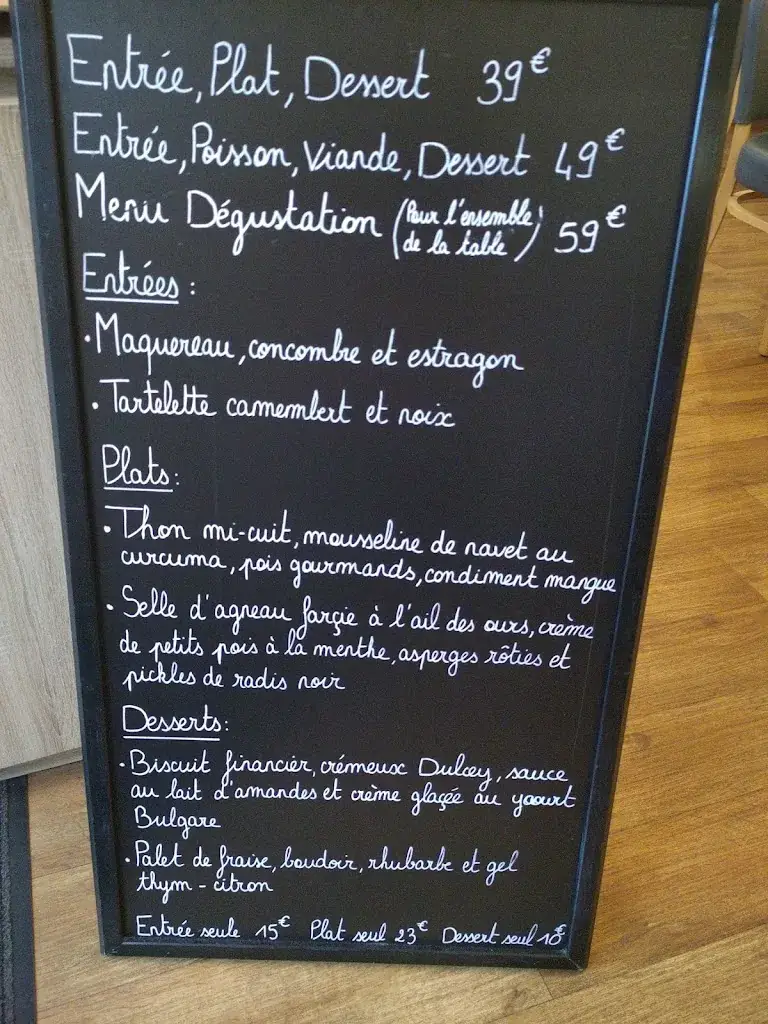 Entrée, Plat, Dessert 39€
Entrée, Poisson, Viande, Dessert 49€
Menu Dégustation (Pour l'ensemble de la table) 59€
Entrées :
• Maquereau, concombre et estragon
• Tartelette camembert et noix
Plats :
• Thon mi-cuit, mousseline de navet au
curcuma, pois gourmands, condiment mangue
• Selle d'agneau farçie à l'ail des ours, crème
de petits pois à la menthe, asperges rôties et
pickles de radis noir
Desserts :
• Biscuit financier, crémeux Dulcey, sauce
au lait d'amandes et crème glaçée au yaourt
Bulgare
• Palet de fraise, boudoir, rhubarbe et gel
thym - citron
Entrée seule 15€ Plat seul 23€ Dessert seul 10€